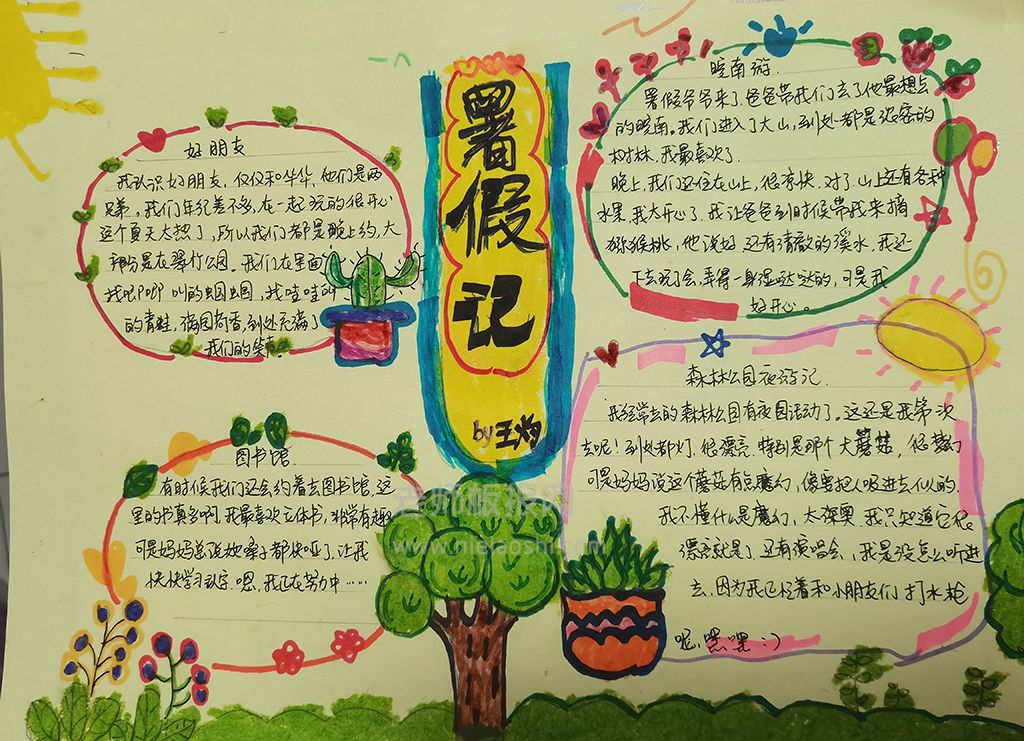 暑假记
by 王灼
好朋友
我认识好朋友,仪仪和华华,他们是两
兄弟,我们年纪差不多,在一起玩的很开心
这个夏天太热了,所以我们都是晚上约,大
部分是在翠竹公园。我们在里面
叫的蝈蝈,我哇哇的
的青蛙,满园荷香,到处充满了
我们的笑声。
图书馆
有时候我们还会约着去图书馆,这
里的书真多啊,我最喜欢立体书,非常有趣
可是妈妈总说她嗓子都快哑了,让我
快快学习认字,嗯,我正在努力中……
皖南游.
暑假爷爷来了,爸爸带我们去了他最想去
的皖南。我们进入了大山,到处都是浓密的
树林,我最喜欢了.
晚上,我们还住在山上,很凉快.对了,山上还有各种
水果,我太开心了.我让爸爸到时候带我来摘
猕猴桃,他说好.还有清澈的溪水,我还
下去玩了会,弄得一身湿哒哒的,可是我
好开心。
森林公园夜游记.
我经常去的森林公园有夜园活动了。这还是我第一次
去呢!到处都灯,很漂亮.特别是那个大蘑菇,很梦幻
可是妈妈说这个蘑菇有点魔幻,像要把人吸进去似的.
我不懂什么是魔幻,太深奥,我只知道它很
漂亮就是了.还有演唱会,我是没怎么听进
去,因为我已忙着和小朋友们打水枪
呢,嘿嘿:)
老师板报网
www.nielaoshi.com